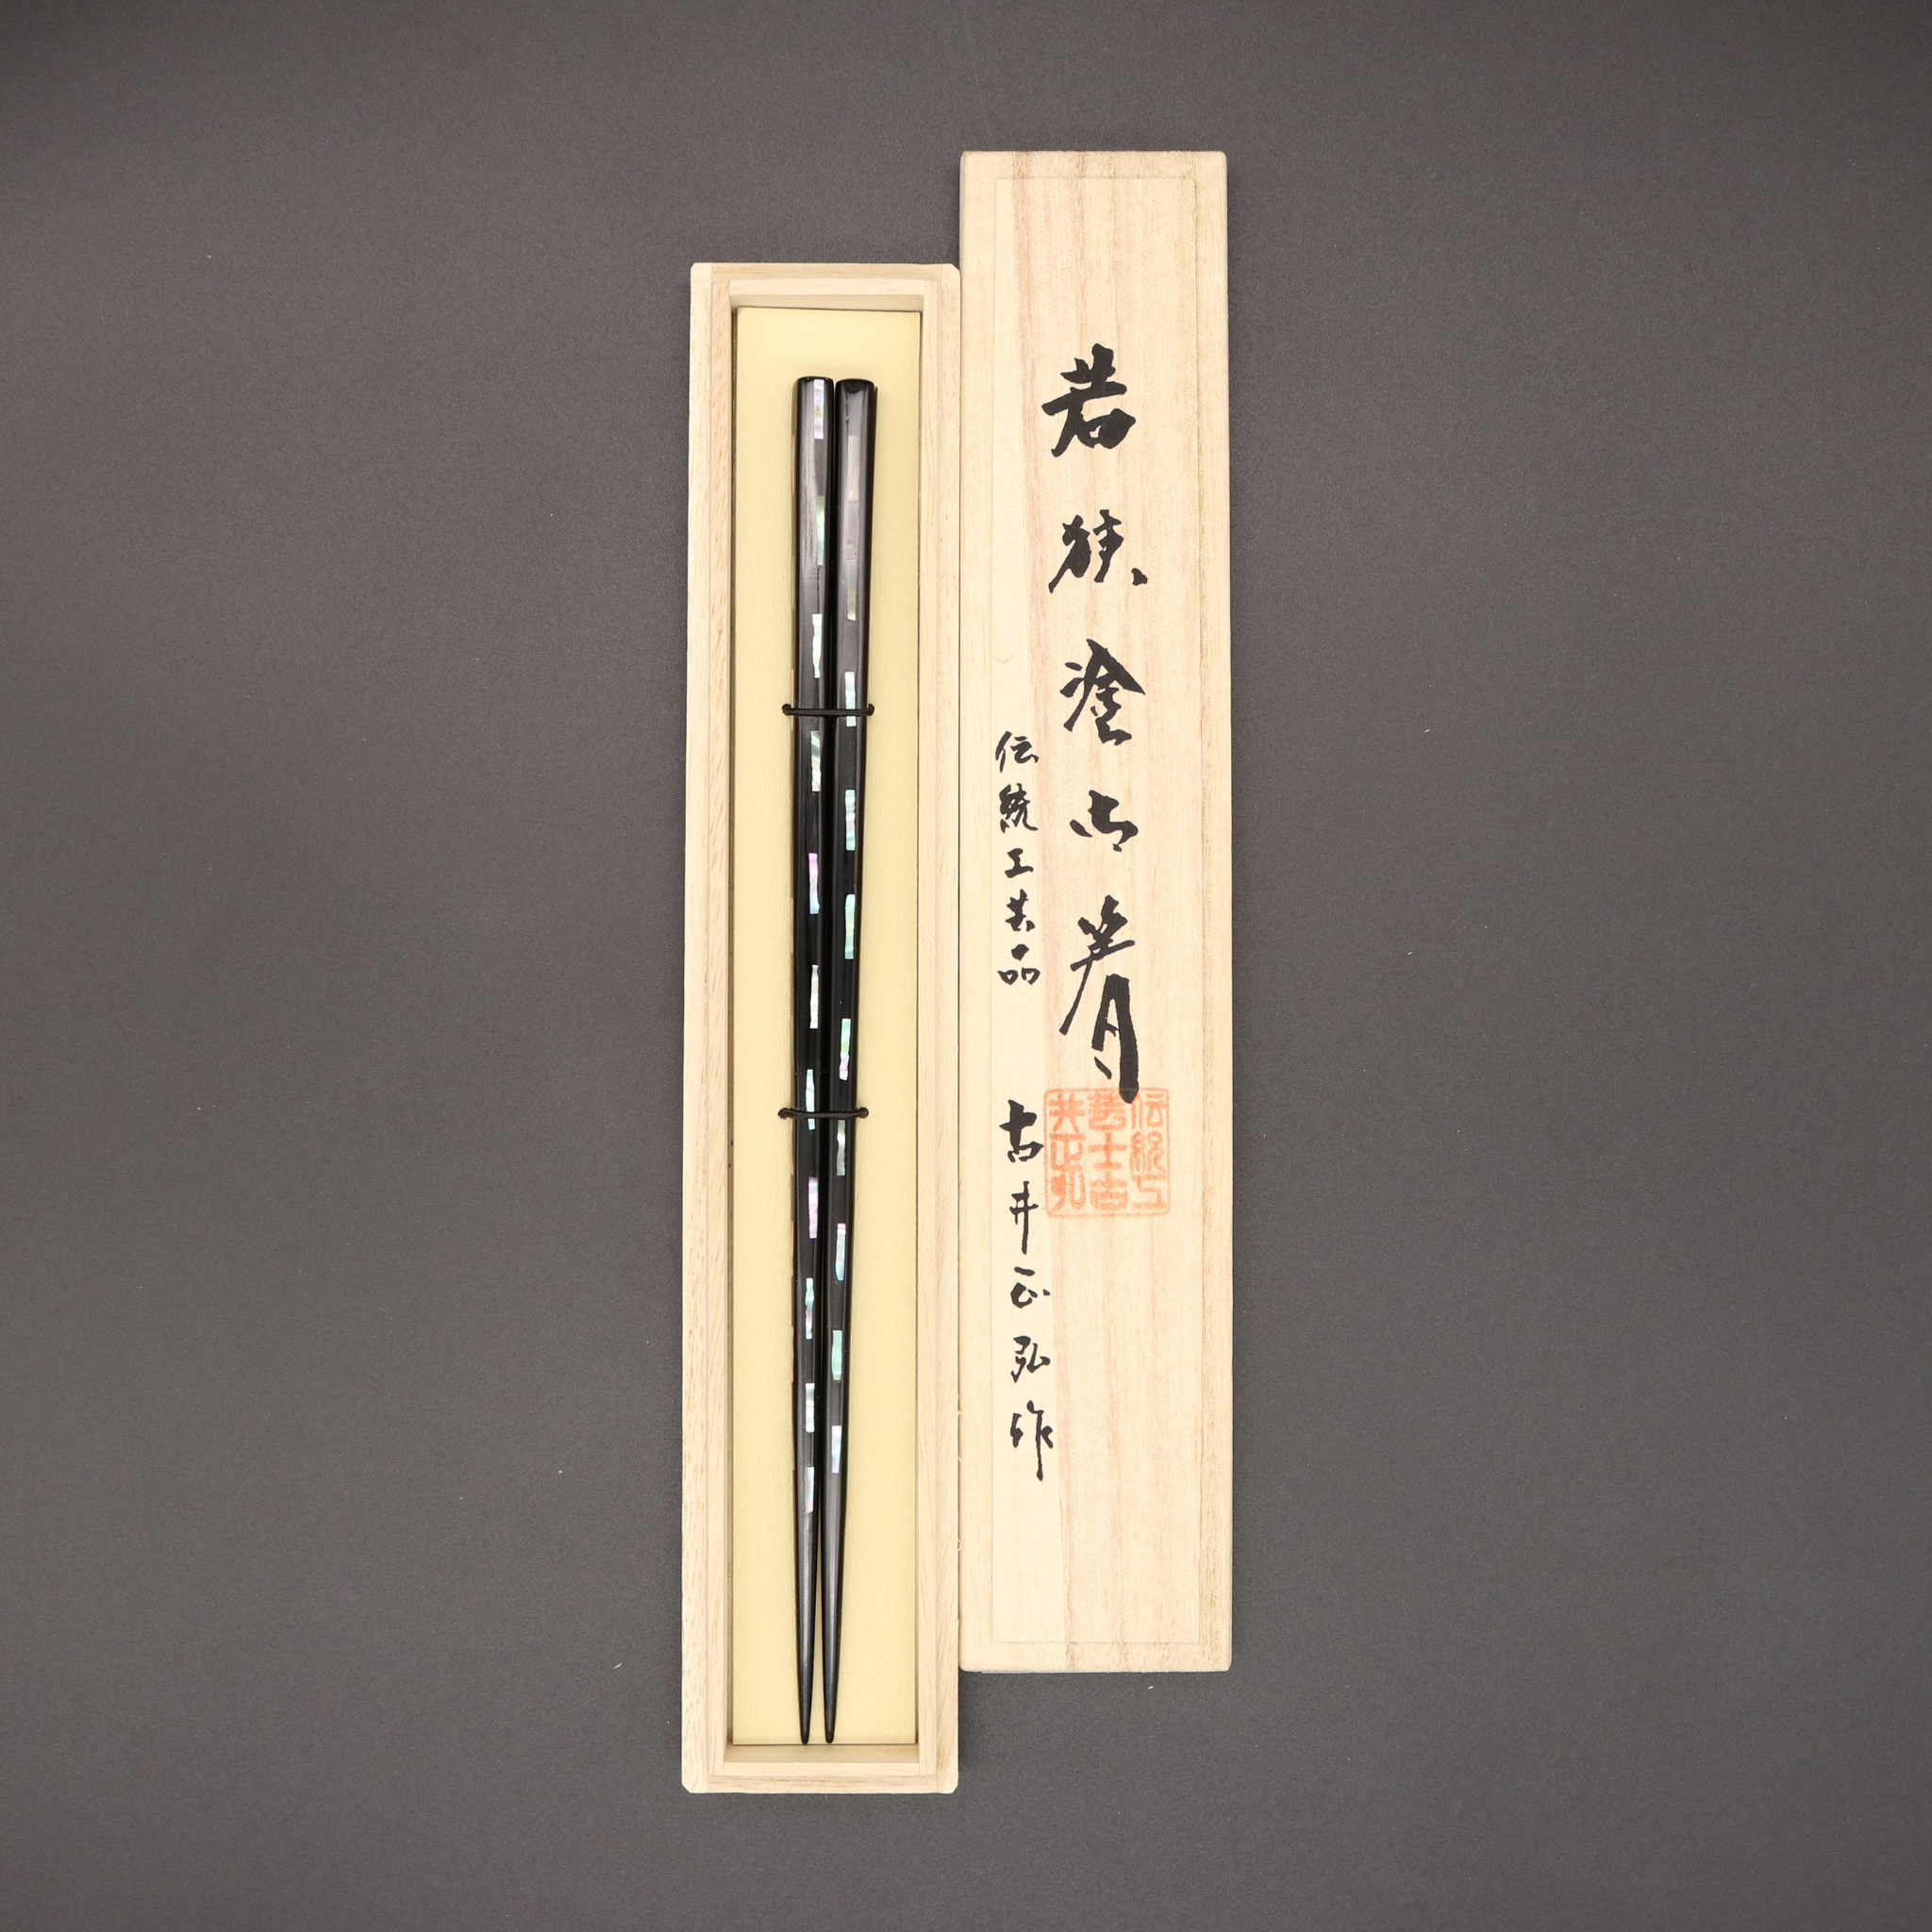 若狭塗御箸
伝統工芸品
古井正弘作
伝統工
芸士古
井正弘